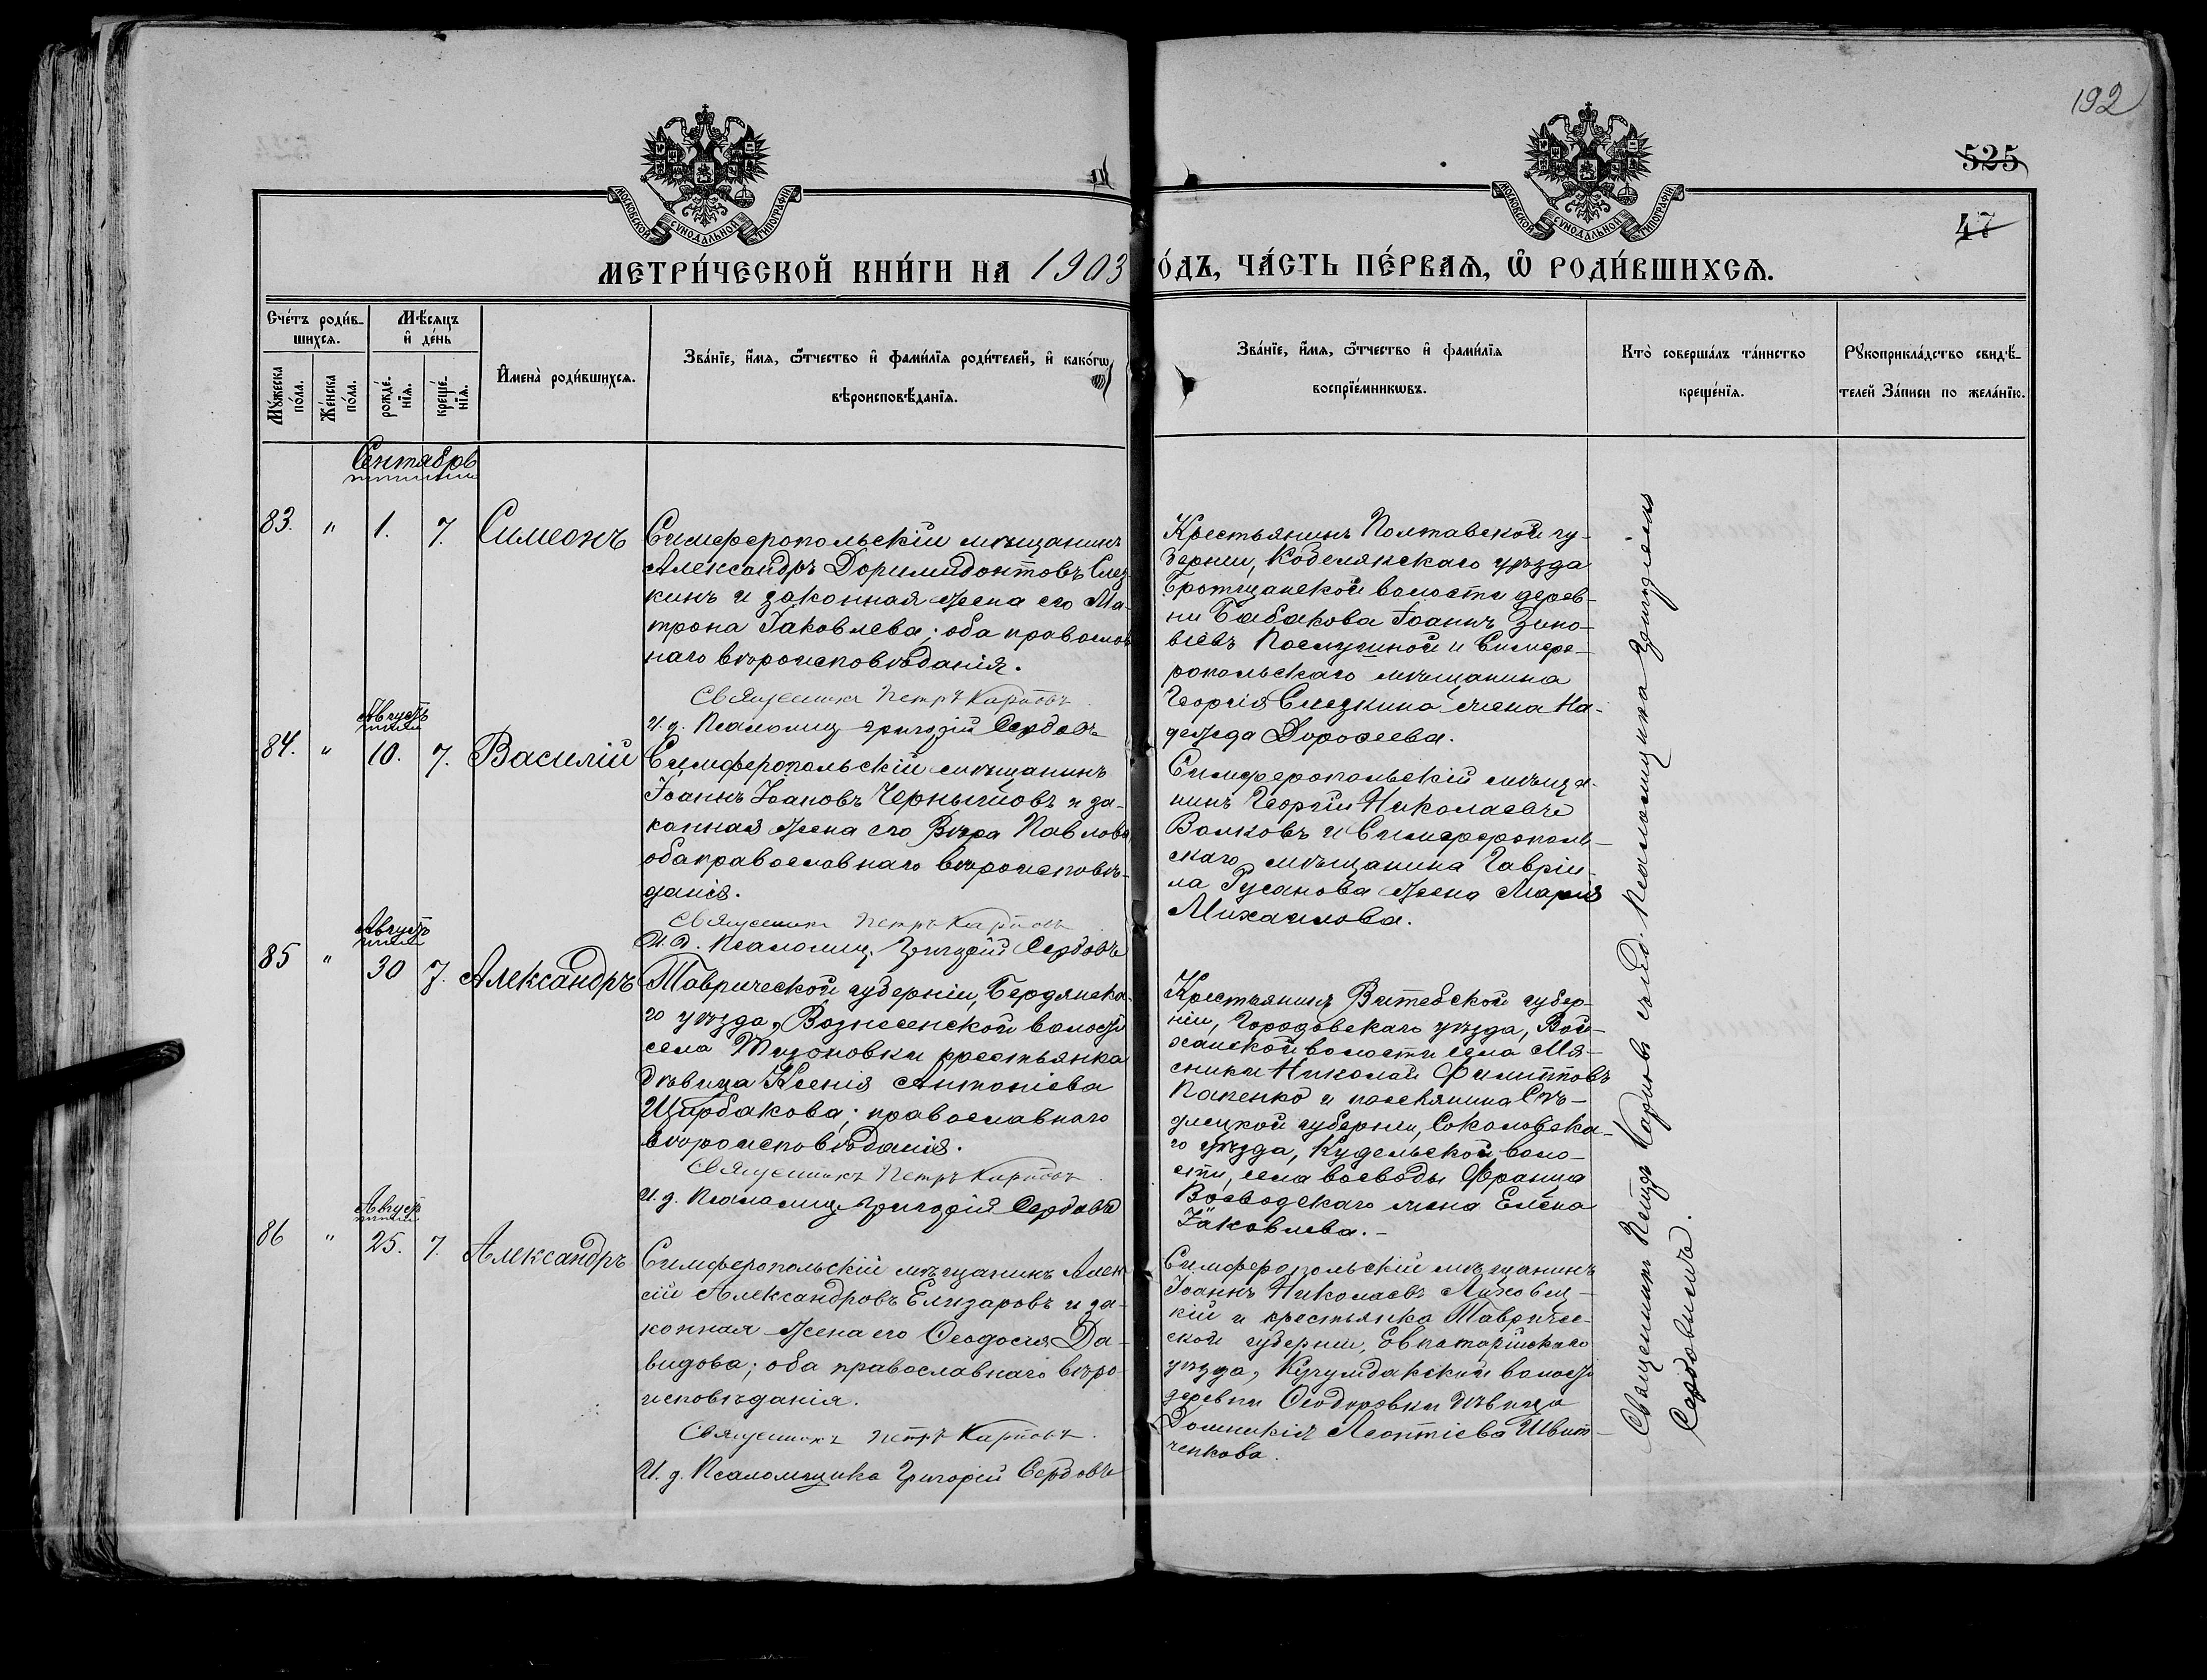 192
525
47
МОСКОВСКОЙ СУНОДАЛЬНОЙ ТИПОГРАФІИ
МОСКОВСКОЙ СУНОДАЛЬНОЙ ТИПОГРАФІИ
МЕТРИ́ЧЕСКОЙ КНИ́ГИ НА 1903
О́ДЪ, ЧА́СТЬ ПЕ́РВАѦ, Ѿ РОДИ́ВШИХСѦ.
Сче́тъ роди́в-
шихсѧ.
Мꙋ́жеска по́ла.
Же́нска по́ла.
Мѣ́сѧцъ
и҆ де́нь
рожде́-
нїѧ.
креще́-
нїѧ.
И҆мена̀ роди́вшихсѧ.
Зва́нїе, и҆́мѧ, ѻ҆́тчество и҆ фами́лїѧ роди́телей, и҆ како́гѡ
вѣроисповѣ́данїѧ.
Зва́нїе, и҆́мѧ, ѻ҆́тчество и҆ фами́лїѧ
воспрїе́мникѡвъ.
Кто̀ соверша́лъ та́инство
креще́нїѧ.
Рꙋкоприкла́дство свидѣ́-
телей за́писи по жела́нїю.
Сентябрь
83. " 1. 7. Симеонъ
Симферопольскій мѣщанинъ
Александръ Доримидонтовъ Слез-
кинъ и законная жена его Ма-
трона Іаковлева; оба православ
наго вѣроисповѣданія.
Священникъ Петръ Карповъ
И. д. Псаломщ. Григорій Сердовъ
Крестьянинъ Полтавской гу-
берніи, Кобелякскаго уѣзда
волости дерев-
ни Бабакова Іоаннъ Зино-
вьевъ и Симфе-
ропольскаго мѣщанина
Георгія Слезкина жена На-
дежда Дороѳеева.
Августъ
84. " 10. 7. Василій
Симферопольскій мѣщанинъ
Іоаннъ Іоановъ Чернышовъ и за-
конная жена его Вѣра Павлова
оба православнаго вѣроисповѣ-
данія.
Священникъ Петръ Карповъ
И. д. Псаломщ. Григорій Сердовъ
Симферопольскій мѣща-
нинъ Георгій Николаевъ
Волковъ и Симферополь-
скаго мѣщанина Гавріи-
ла Русанова жена Марія
Михаилова.
Августъ
85 " 30 7. Александръ
Таврической губерніи, Бердянска-
го уѣзда, Вознесенской волости
села крестьянка
дѣвица Ксенія Антоніева
Щирбакова; православнаго
вѣроисповѣданія.
Священникъ Петръ Карповъ
И. д. Псаломщ. Григорій Сердовъ
Крестьянинъ Витебской губер-
ніи, Городовскаго уѣзда, Вой-
ханской волости села Мя-
сники Николай Филипповъ
Папенко и поселянина Сѣ-
длецкой губерніи, Соколовска-
го уѣзда, Кудельской воло-
сти, села воеводы Франца
Воеводскаго жена Елена
Іаковлева.-
Августъ
86 " 25. 7. Александръ
Симферопольскій мѣщанинъ Алек
сій Александровъ Елизаровъ и за-
конная жена его Ѳеодосія Да-
видова; оба православнаго вѣро-
исповѣданія.
Священникъ Петръ Карповъ.
И. д. Псаломщика Григорій Сердовъ
Симферопольскій мѣщанинъ
Іоаннъ Николаевъ Ляховец-
кій и крестьянка Тавриче-
ской губерніи, Евпаторійскаго
уѣзда, волости
деревни Ѳеодоровки дѣвица
Домникія Леонтіева Швит-
ченкова.
Священникъ Петръ Карповъ съ и. д. Псаломщика Григоріемъ
Сердовымъ.